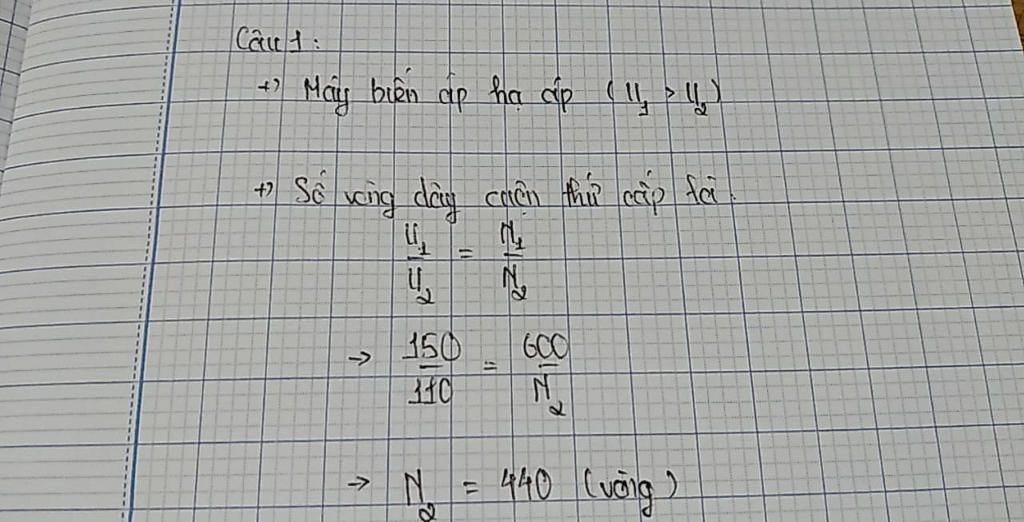 Câu 1:
+) Máy biến áp hạ áp (U₁ > U₂)
+) Số vòng dây cuộn thứ cấp là:
U₁/U₂ = N₁/N₂
→ 150/110 = 600/N₂
→ N₂ = 440 (vòng)